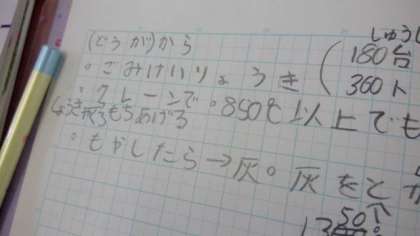 (どうが)から
・ごみけいりょうき
(しゅうし
180台
360ト
・クレーンで
しょう却ろもちあげる
・850℃以上でも
・もやしたら→灰。灰をと
50个